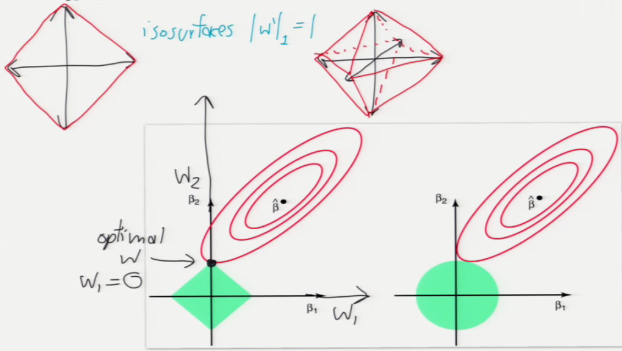 isosurfaces |w'|₁ = 1
W₂
β₂
β̂
optimal
W
W₁ = 0
β₁
W₁
β₂
β̂
β₁